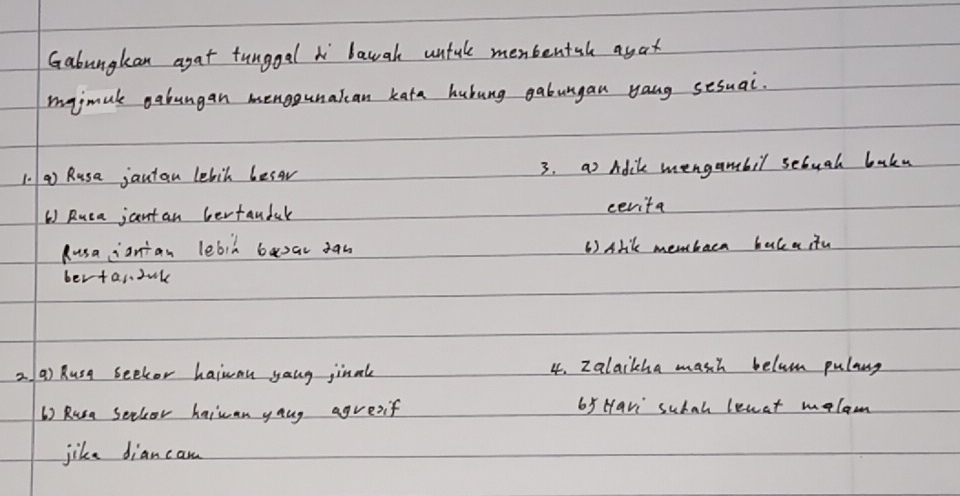 Gabungkan ayat tunggal di bawah untuk membentuk ayat
majmuk gabungan menggunakan kata hubung gabungan yang sesuai.
1. a) Rusa jantan lebih besar
b) Rusa jantan bertanduk
Rusa jantan lebih besar dan
bertanduk
2. a) Rusa seekor haiwan yang jinak
b) Rusa seekor haiwan yang agresif
jika diancam
3. a) Adik mengambil sebuah buku
cerita
b) Adik membaca buku itu
4. Zalaikha masih belum pulang
b) Hari sudah lewat malam